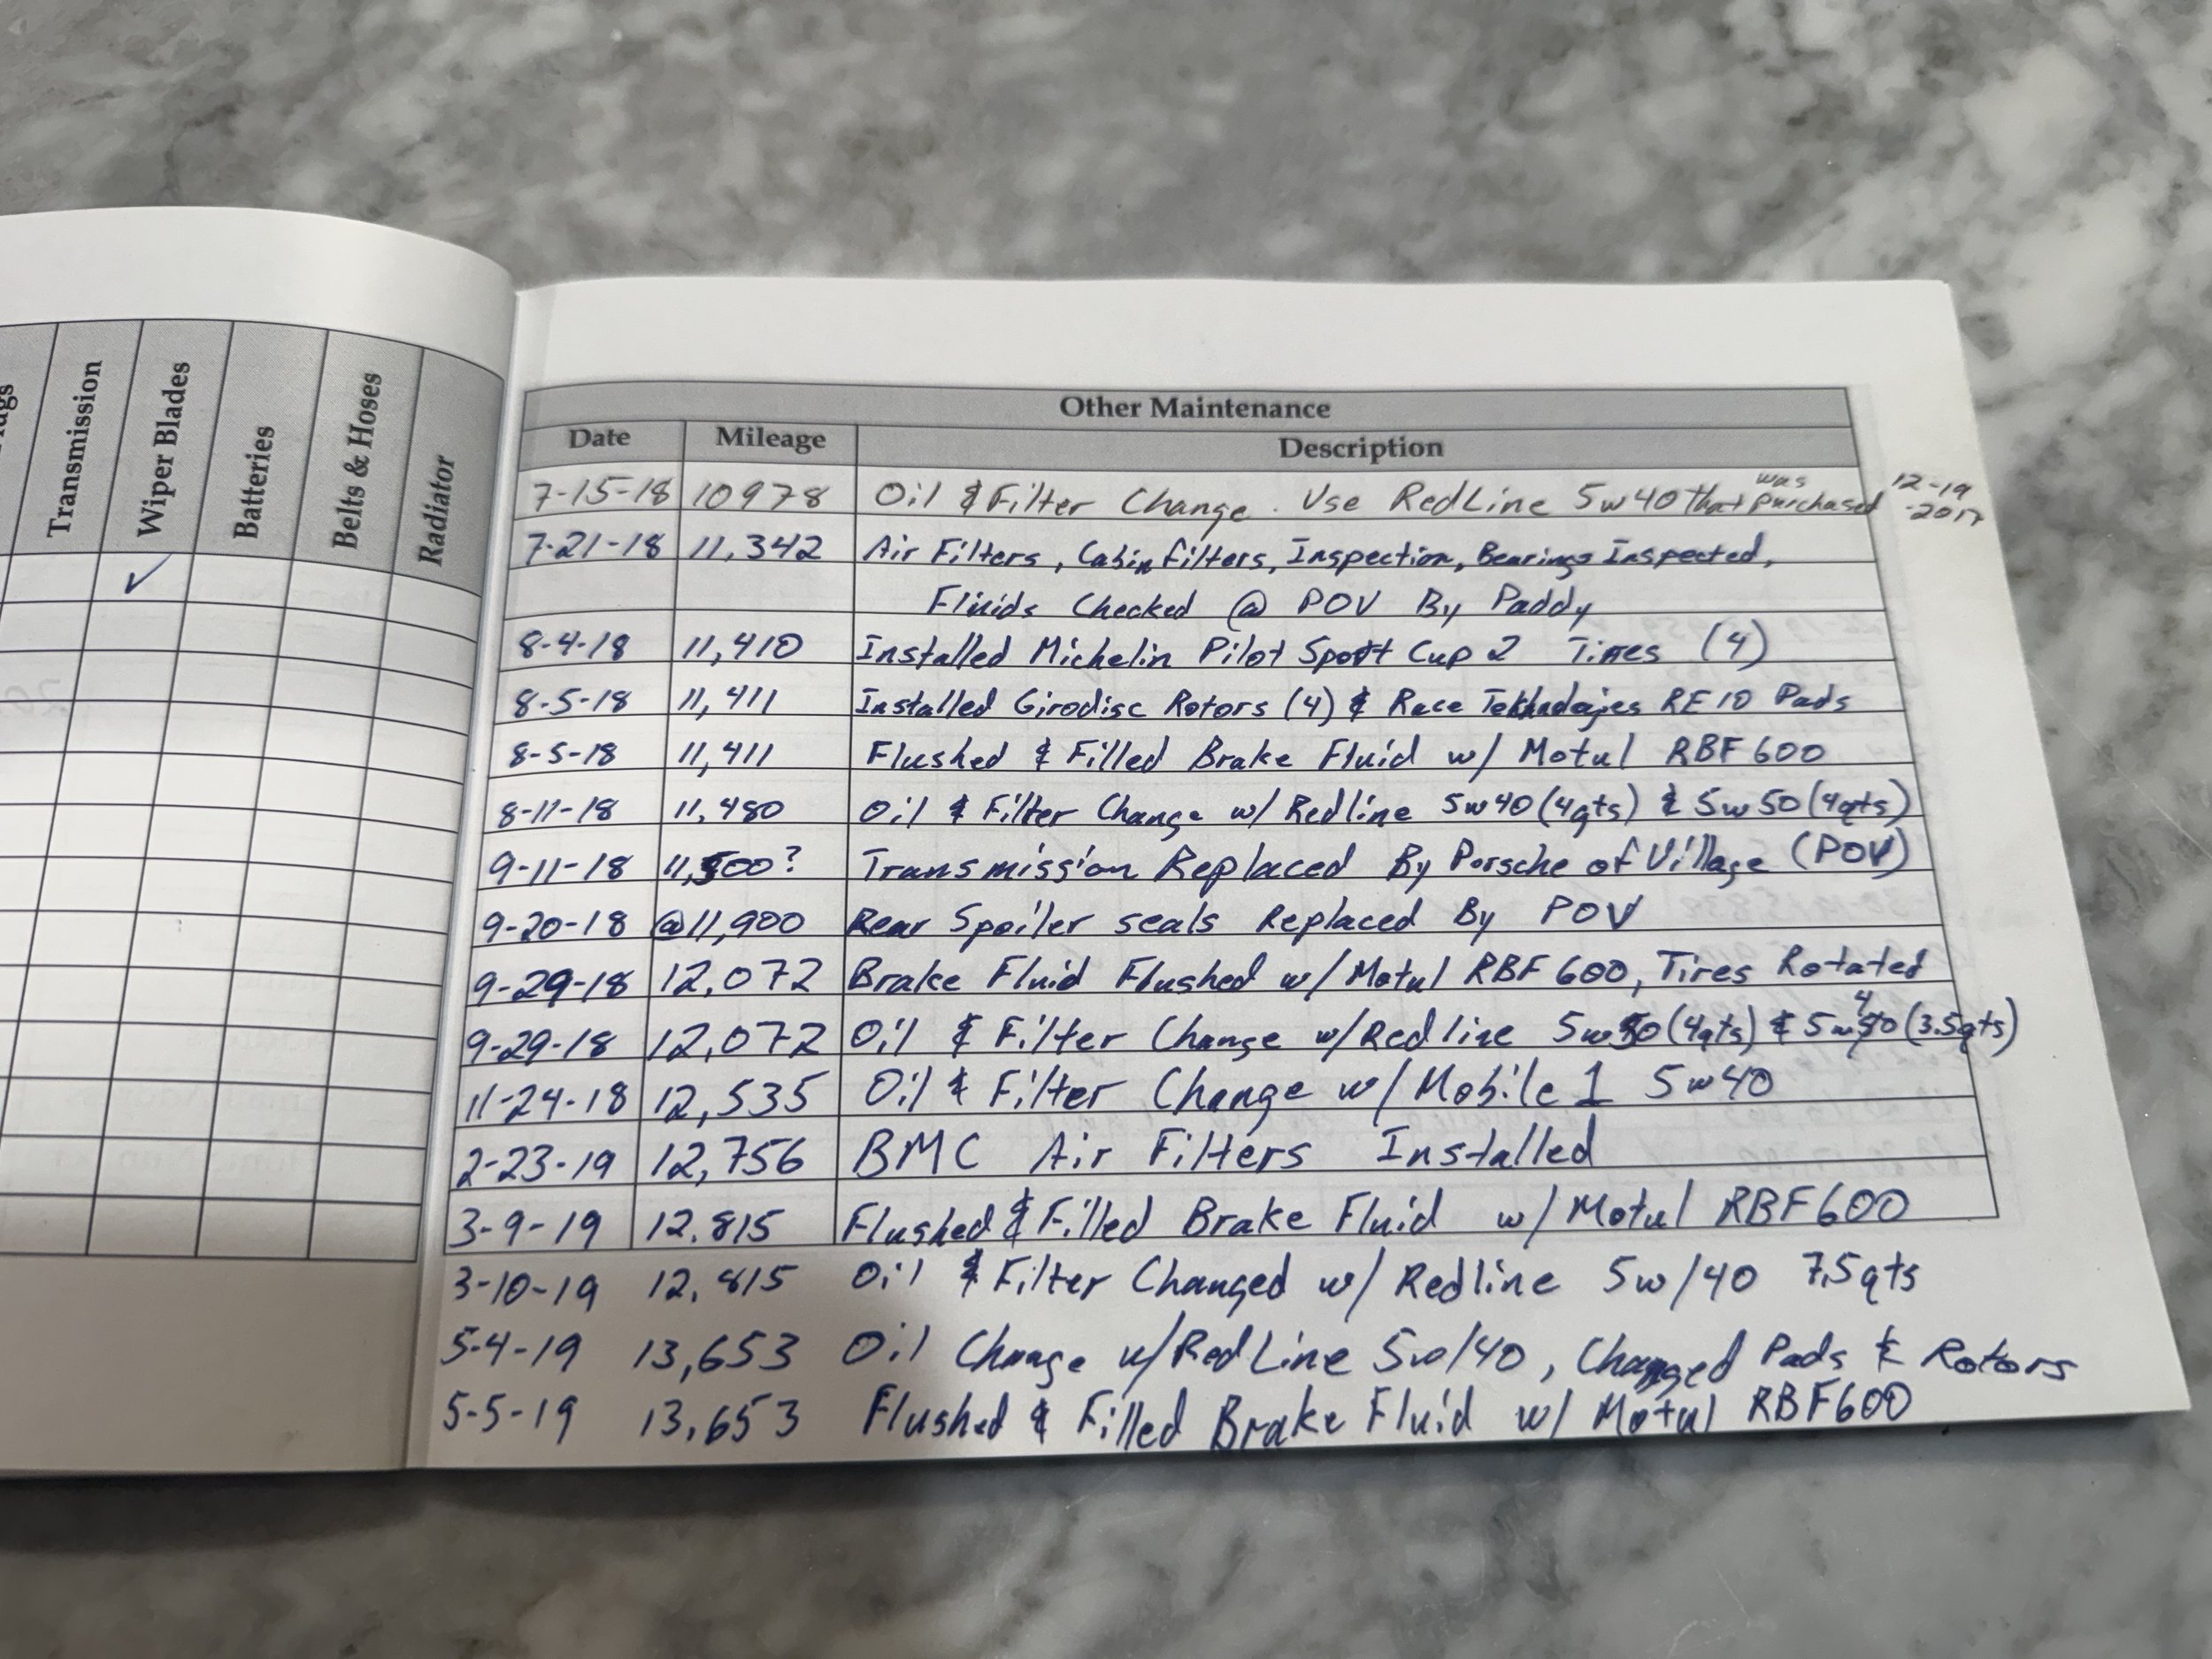 Transmission
Wiper Blades
Batteries
Belts & Hoses
Radiator
✓
Other Maintenance
Date Mileage Description
7-15-18 10978 Oil & Filter Change. Use RedLine 5w40 that was purchased 12-19-2017
7-21-18 11,342 Air Filters, Cabin Filters, Inspection, Bearings Inspected,
Fluids Checked @ POV By Paddy
8-4-18 11,410 Installed Michelin Pilot Sport Cup 2 Tires (4)
8-5-18 11,411 Installed Girodisc Rotors (4) & Race RE10 Pads
8-5-18 11,411 Flushed & Filled Brake Fluid w/ Motul RBF 600
8-11-18 11,480 Oil & Filter Change w/ Redline 5w40 (4qts) & 5w50 (4qts)
9-11-18 11,500? Transmission Replaced By Porsche of Village (POV)
9-20-18 @11,900 Rear Spoiler seals Replaced By POV
9-29-18 12,072 Brake Fluid Flushed w/ Motul RBF 600, Tires Rotated
9-29-18 12,072 Oil & Filter Change w/ Redline 5w50 (4qts) & 5w40 (3.5qts)
11-24-18 12,535 Oil & Filter Change w/ Mobile 1 5w40
2-23-19 12,756 BMC Air Filters Installed
3-9-19 12,815 Flushed & Filled Brake Fluid w/ Motul RBF600
3-10-19 12,815 Oil & Filter Changed w/ Redline 5w/40 7.5qts
5-4-19 13,653 Oil Change w/ RedLine 5w/40, Changed Pads & Rotors
5-5-19 13,653 Flushed & Filled Brake Fluid w/ Motul RBF600